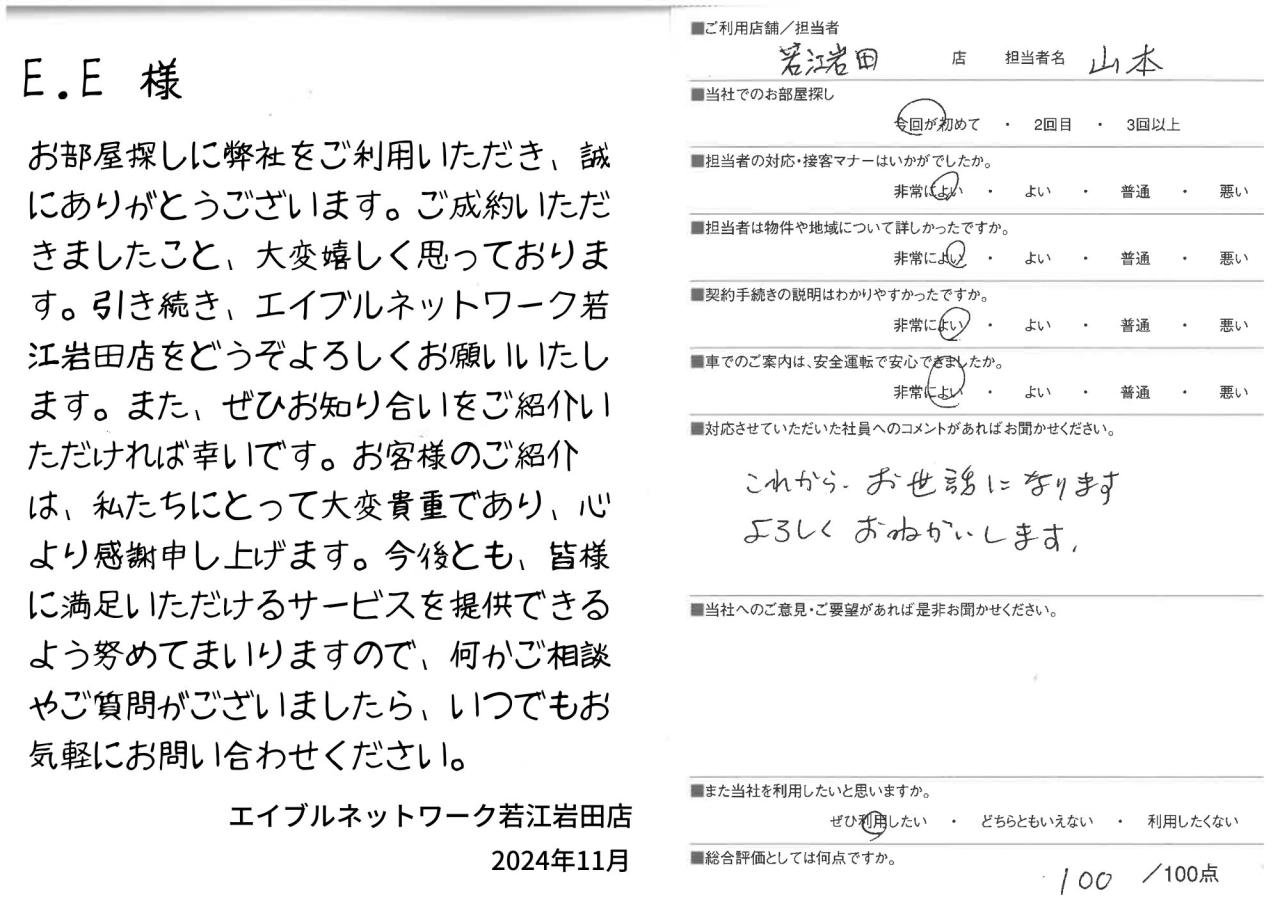 E.E 様
お部屋探しに弊社をご利用いただき、誠
にありがとうございます。ご成約いただ
きましたこと、大変嬉しく思っておりま
す。引き続き、エイブルネットワーク若
江岩田店をどうぞよろしくお願いいたし
ます。また、ぜひお知り合いをご紹介い
ただければ幸いです。お客様のご紹介
は、私たちにとって大変貴重であり、心
より感謝申し上げます。今後とも、皆様
に満足いただけるサービスを提供できる
よう努めてまいりますので、何かご相談
やご質問がございましたら、いつでもお
気軽にお問い合わせください。
エイブルネットワーク若江岩田店
2024年11月
■ご利用店舗／担当者
若江岩田 店 担当者名 山本
■当社でのお部屋探し
今回が初めて ・ 2回目 ・ 3回以上
■担当者の対応・接客マナーはいかがでしたか。
非常によい ・ よい ・ 普通 ・ 悪い
■担当者は物件や地域について詳しかったですか。
非常によい ・ よい ・ 普通 ・ 悪い
■契約手続きの説明はわかりやすかったですか。
非常によい ・ よい ・ 普通 ・ 悪い
■車でのご案内は、安全運転で安心できましたか。
非常によい ・ よい ・ 普通 ・ 悪い
■対応させていただいた社員へのコメントがあればお聞かせください。
これから、お世話になります
よろしく おねがいします。
■当社へのご意見・ご要望があれば是非お聞かせください。
■また当社を利用したいと思いますか。
ぜひ利用したい ・ どちらともいえない ・ 利用したくない
■総合評価としては何点ですか。
100 ／100点